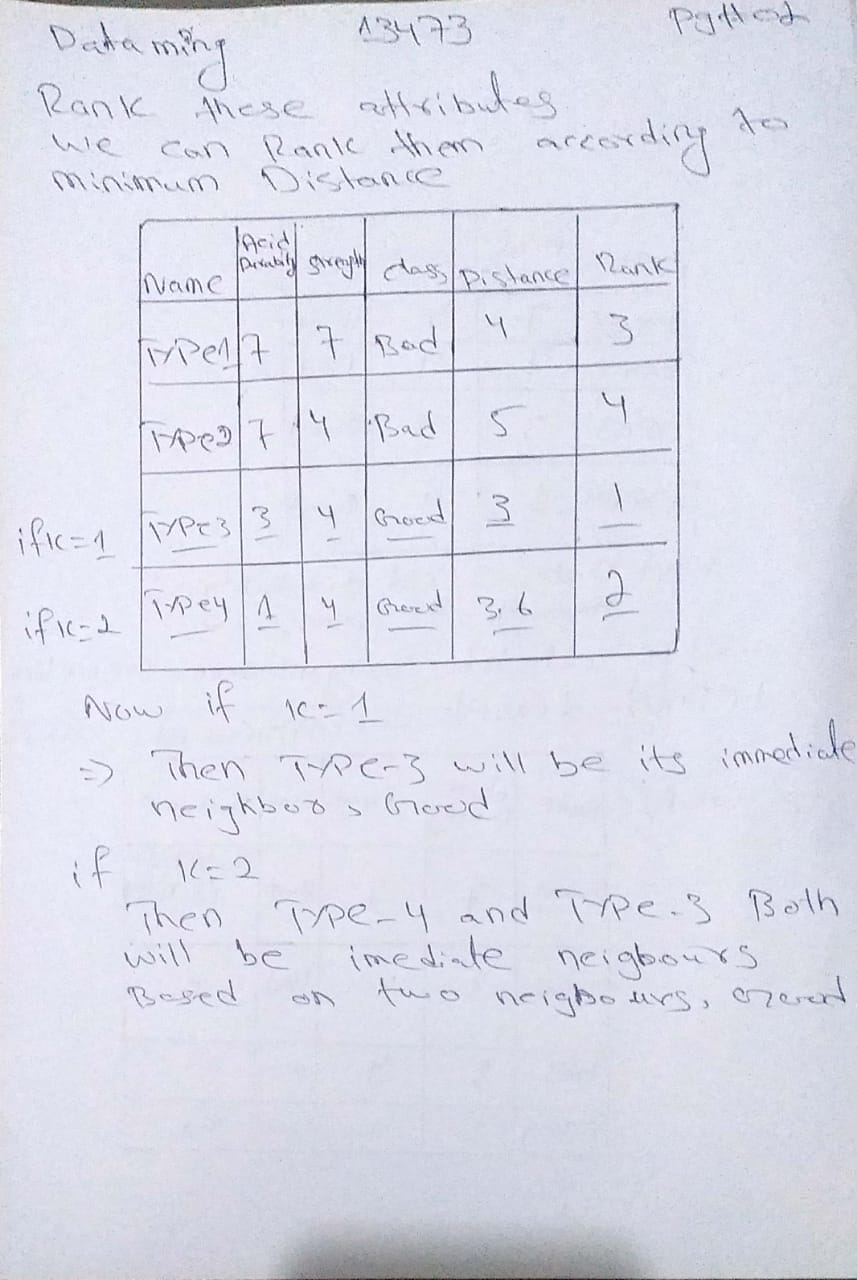 Data ming 13473
Rank these attributes
we can Rank them according to
minimum Distance
Name Acid Durability strength class Distance Rank
Type1 7 7 Bad 4 3
Type2 7 4 Bad 5 4
if k=1 Type3 3 4 Good 3 1
if k=2 Type4 1 4 Good 3.6 2
Now if k=1
=> Then Type-3 will be its immediate
neighbor s Good
if k=2
Then Type-4 and Type-3 Both
will be imediate neigbours
Based on two neigbours, Good